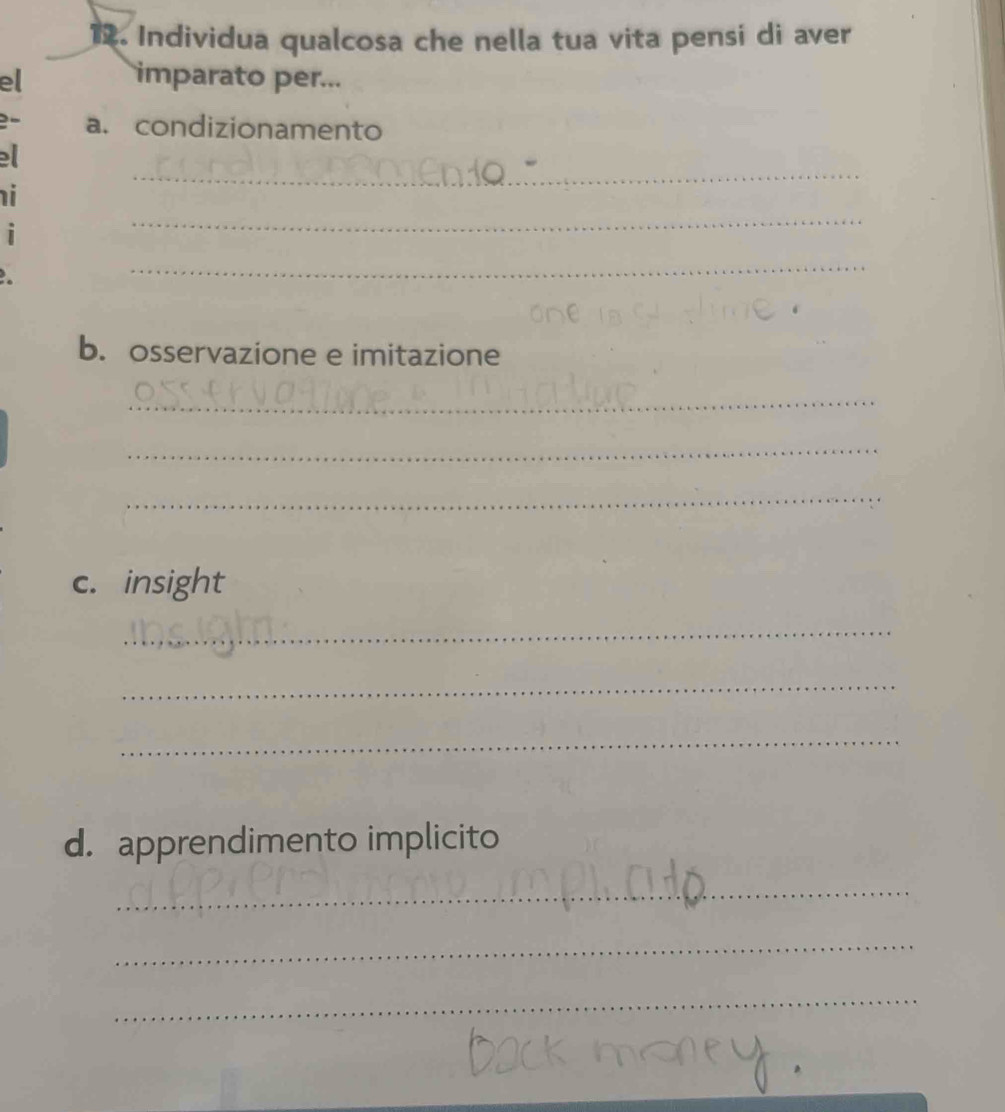 12. Individua qualcosa che nella tua vita pensi di aver
el imparato per...
e- a. condizionamento
el condizionamento
ni
i
e.
one is
b. osservazione e imitazione
osservatione e
c. insight
insight
d. apprendimento implicito
apprendimento implicito
back money.